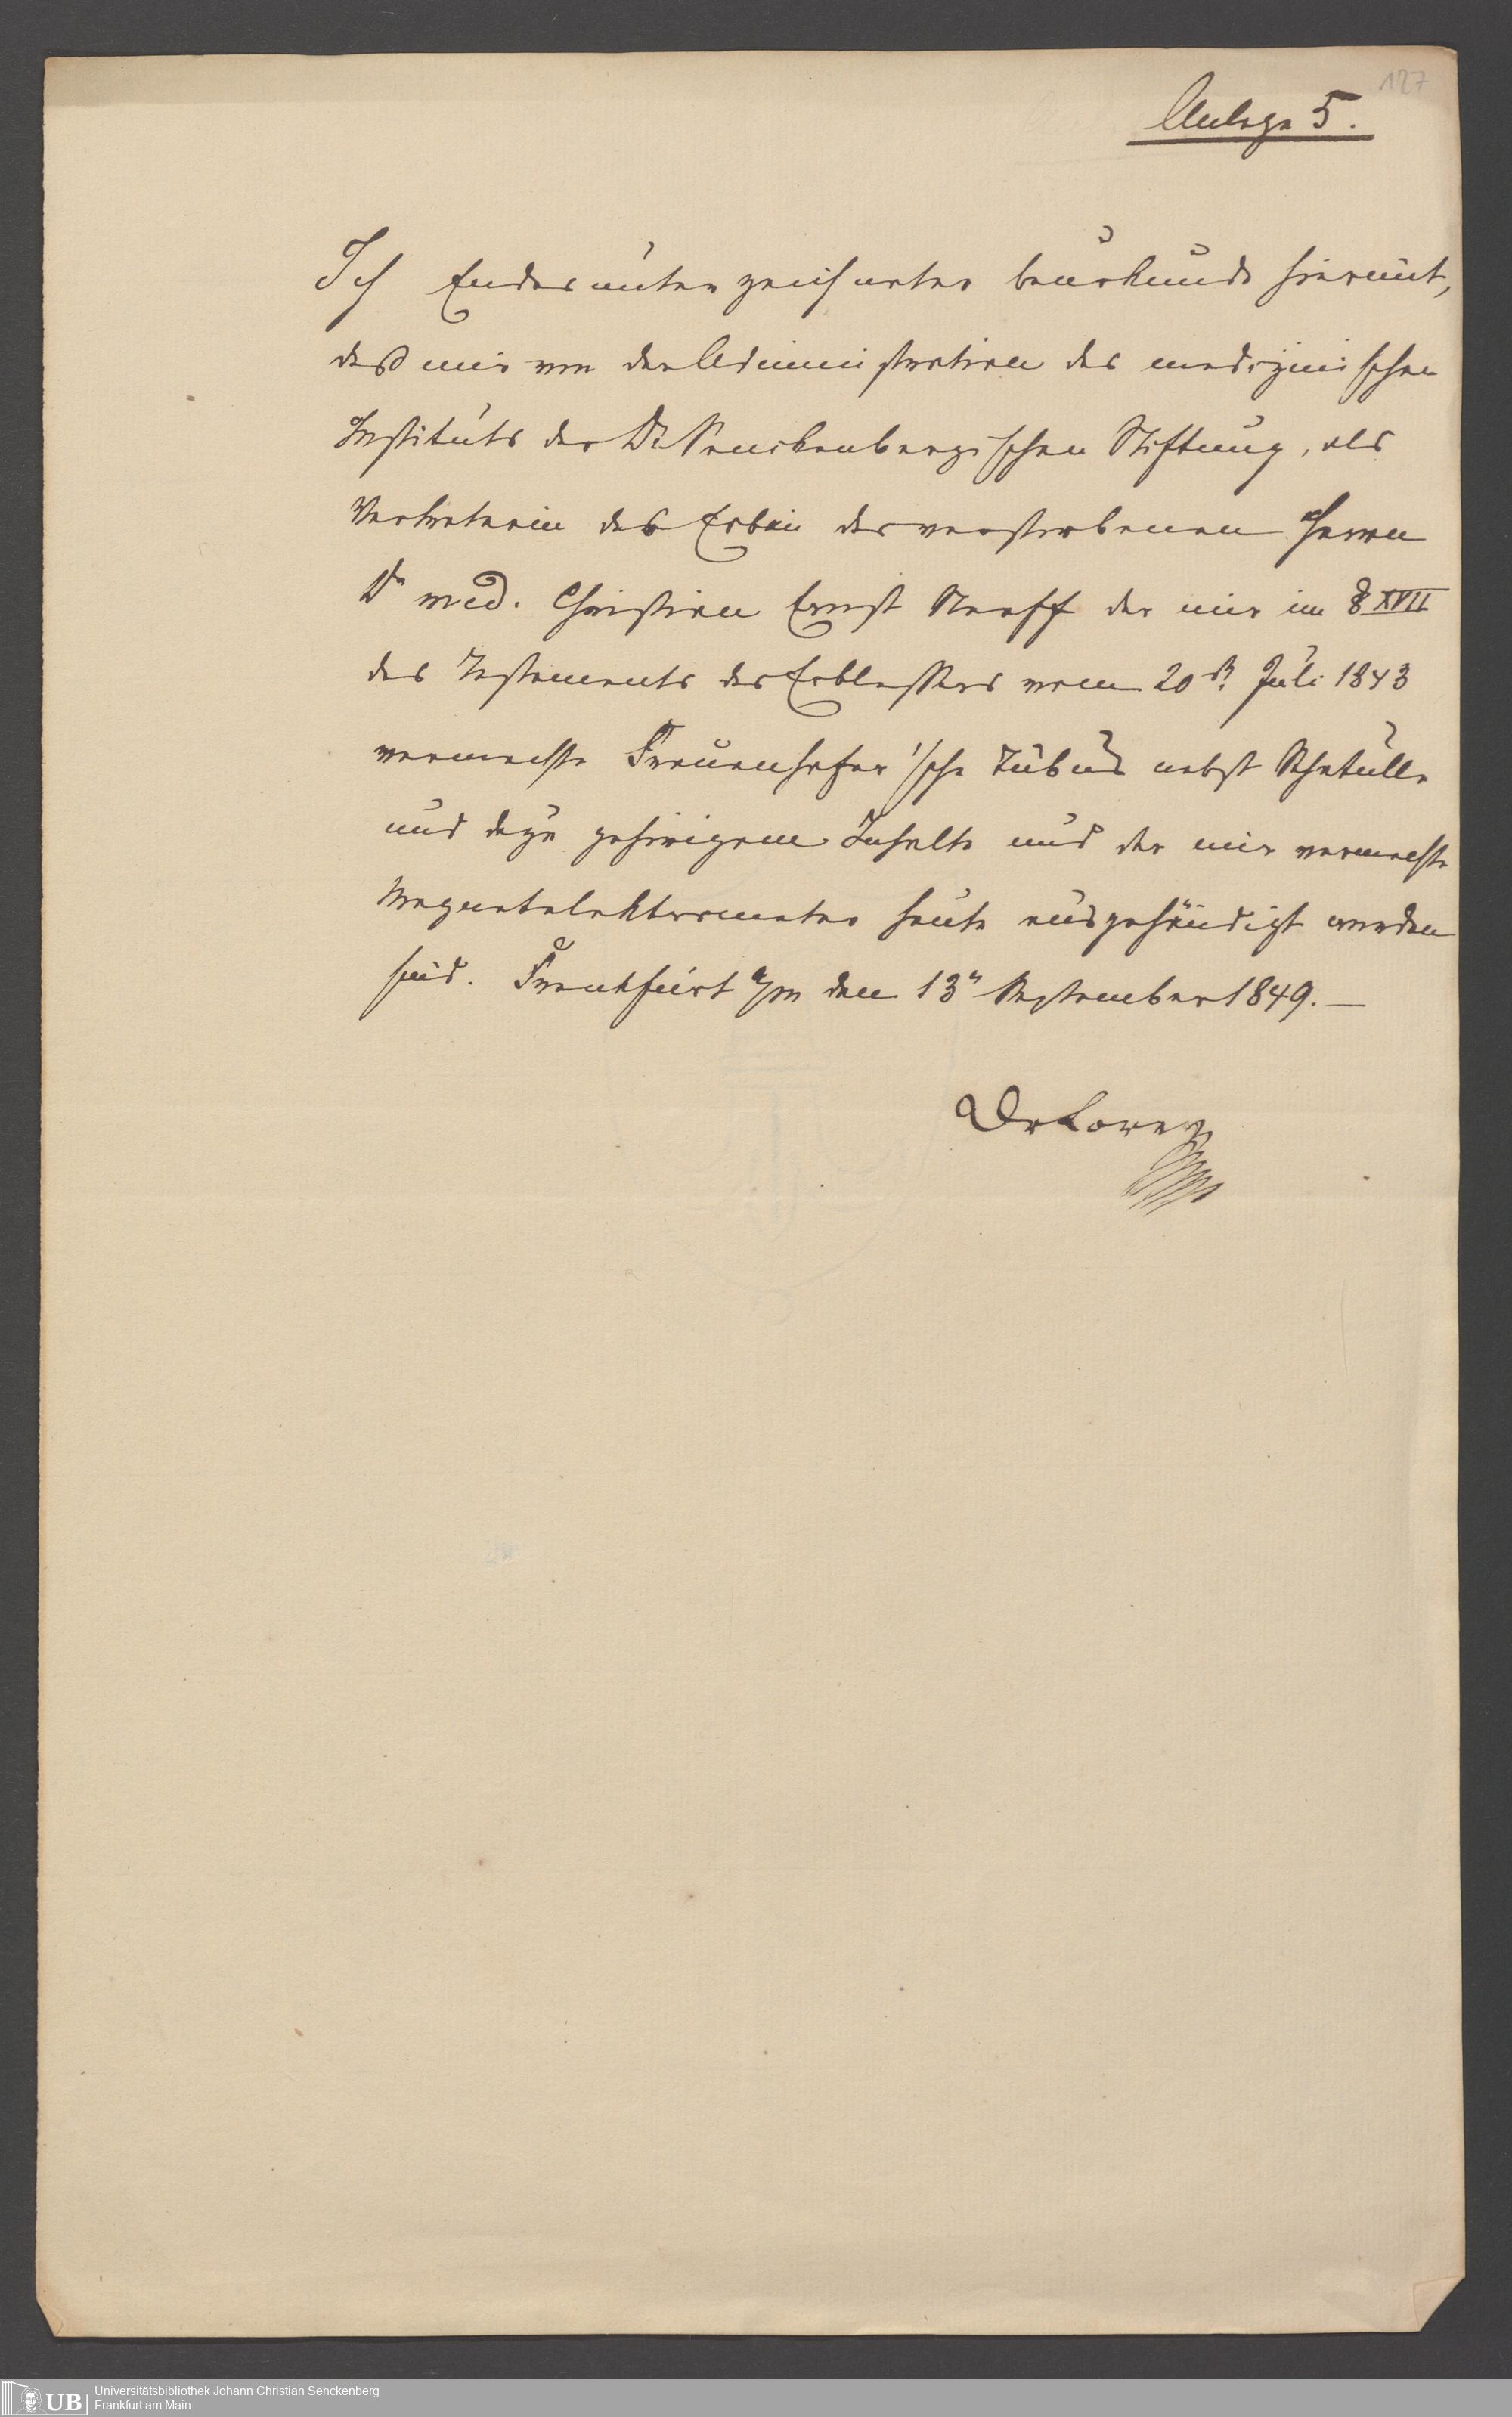 127
Anlage 5.
Ich Endesunterzeichneter beurkunde hiermit,
daß mir von der Administration des medizinischen
Instituts der Dr Senckenbergischen Stiftung, als
Vertreterin des Erbin des verstorbenen Herrn
Dr med. Christian Ernst Neeff der mir im § XVII
des Testaments des Erblassers vom 20st. Juli 1843
vermachte Frauenhofer'sche Tubus nebst Schatulle
und dazu gehörigem Inhalte und der mir vermachte
Magnetelektromotor heute ausgehändigt worden
sind. Frankfurt a/m den 13n September 1849. —
Dr Lorey
UB Universitätsbibliothek Johann Christian Senckenberg
Frankfurt am Main